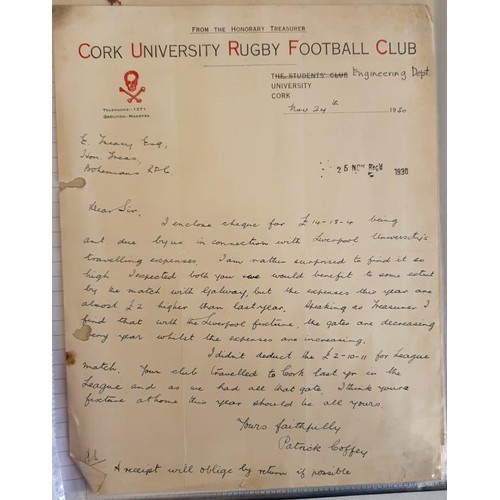 FROM THE HONORARY TREASURER
CORK UNIVERSITY RUGBY FOOTBALL CLUB
THE STUDENTS' CLUB Engineering Dept.
UNIVERSITY
CORK
Nov 24th 1930
TELEPHONE-1371
GROUNDS-MARDYKE
E. Treacy Esq,
Hon. Treas,
Bohemians R.F.C.
25 NOV Rec'd 1930
Dear Sir.
I enclose cheque for £14-13-4 being
amt due by us in connection with Liverpool University's
travelling expenses. I am rather surprised to find it so
high. I expected both you would benefit to some extent
by the match with Galway, but the expenses this year are
almost £2 higher than last year. Speaking as Treasurer I
find that with the Liverpool fixture, the gates are decreasing
every year whilst the expenses are increasing.
I didn't deduct the £2-10-11 for League
match. Your club travelled to Cork last yr in the
League and as we had all that gate I think your
fixture at home this year should be all yours.
Yours faithfully
Patrick Coffey
A receipt will oblige by return if possible